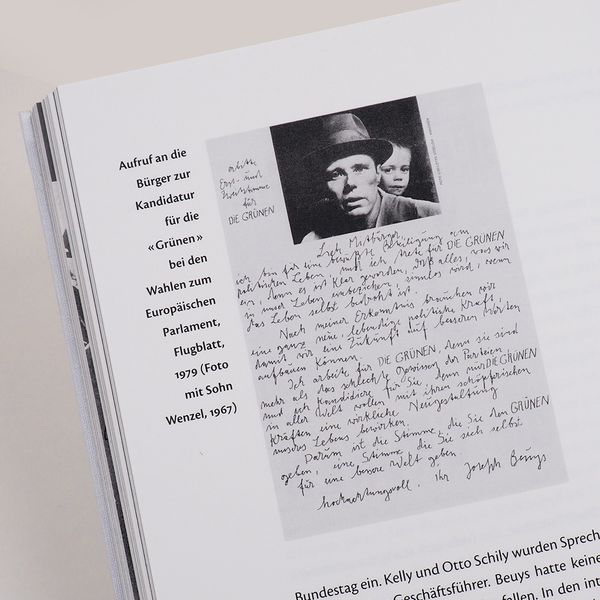 Aufruf an die
Bürger zur
Kandidatur
für die
«Grünen»
bei den
Wahlen zum
Europäischen
Parlament,
Flugblatt,
1979 (Foto
mit Sohn
Wenzel, 1967)
Erst- und
Zweitstimme
für
DIE GRÜNEN
Liebe Mitbürger,
ich bin für eine bewußte Beteiligung am
politischen Leben, und ich trete für DIE GRÜNEN
ein, denn es ist klar geworden, daß alles, was wir
in unser Leben einbeziehen, sinnlos wird, wenn
das Leben selbst bedroht ist.
Nach meiner Erkenntnis brauchen wir
eine ganz neue lebendige politische Kraft,
damit wir eine Zukunft auf besseren
aufbauen können.
Ich arbeite für DIE GRÜNEN, denn sie sind
mehr als das schlechte Gewissen der Parteien
und ich kandidiere für Sie, denn nur DIE GRÜNEN
in aller Welt wollen mit ihren schöpferischen
Kräften eine wirkliche Neugestaltung
unseres Lebens bewirken.
Darum ist die Stimme, die Sie den GRÜNEN
geben, eine Stimme die Sie sich selbst
für eine bessere Welt geben.
hochachtungsvoll, Ihr Joseph Beuys
Bundestag ein. Kelly und Otto Schily wurden Sprech
Geschäftsführer. Beuys hatte keine
fallen. In den int